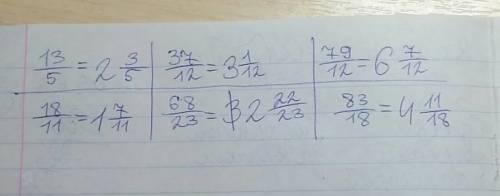 13/5 = 2 3/5 | 37/12 = 3 1/12 | 79/12 = 6 7/12
18/11 = 1 7/11 | 68/23 = 2 22/23 | 83/18 = 4 11/18